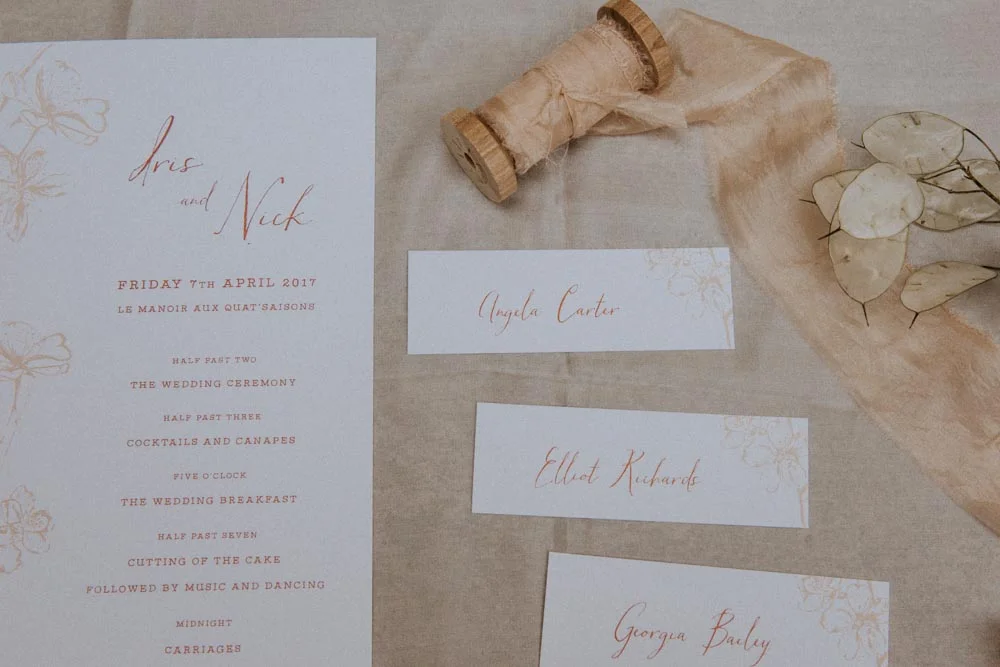 Iris
and
Nick
FRIDAY 7TH APRIL 2017
LE MANOIR AUX QUAT'SAISONS
HALF PAST TWO
THE WEDDING CEREMONY
HALF PAST THREE
COCKTAILS AND CANAPES
FIVE O'CLOCK
THE WEDDING BREAKFAST
HALF PAST SEVEN
CUTTING OF THE CAKE
FOLLOWED BY MUSIC AND DANCING
MIDNIGHT
CARRIAGES
Angela Carter
Elliot Richards
Georgia Bailey